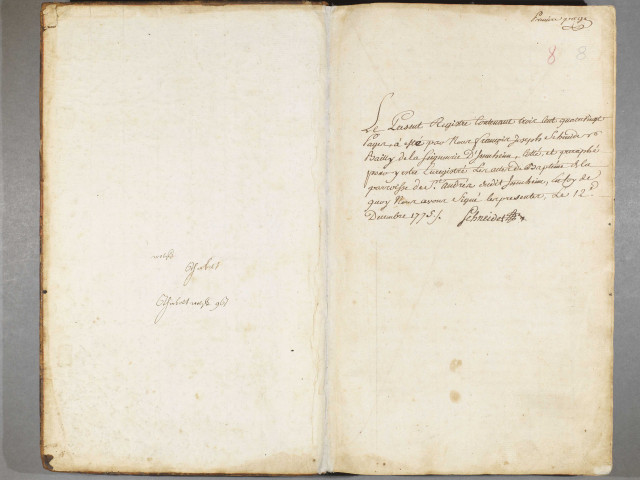 Première page
8 8
Le Present Registre Contenant trois Cent quatrevingt
pages, a été par Nous François Joseph Schneider
Bailly de la Seigneurie D'Jssenheim, Cotté, et paraphé
pour y etre Enregistré Les actes de Baptême de la
parroisse de St. Andrea dudit Jssenheim, En foy de
quoy Nous avons Signé les presentes, Le 12.
Decembre 1775.
Schneider